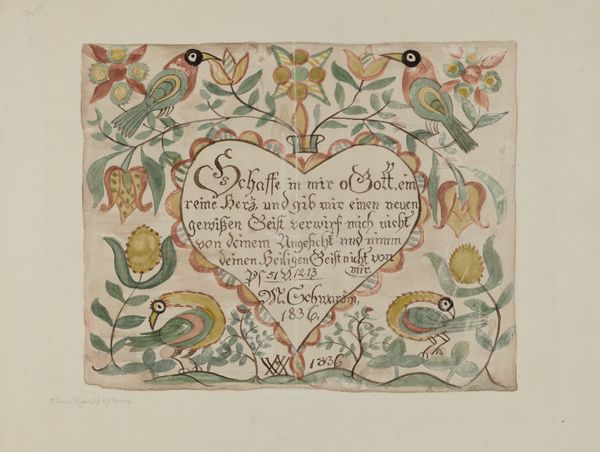 Schaffe in mir o Gott, ein
reine Herz, und gib mir einen neuen
gewißen Geist verwirf mich nicht
von deinem Angesicht und nimm
deinen Heiligen Geist nicht von
mir.
Ps 51 V 12 13
M. Schwardn,
1836.
1836